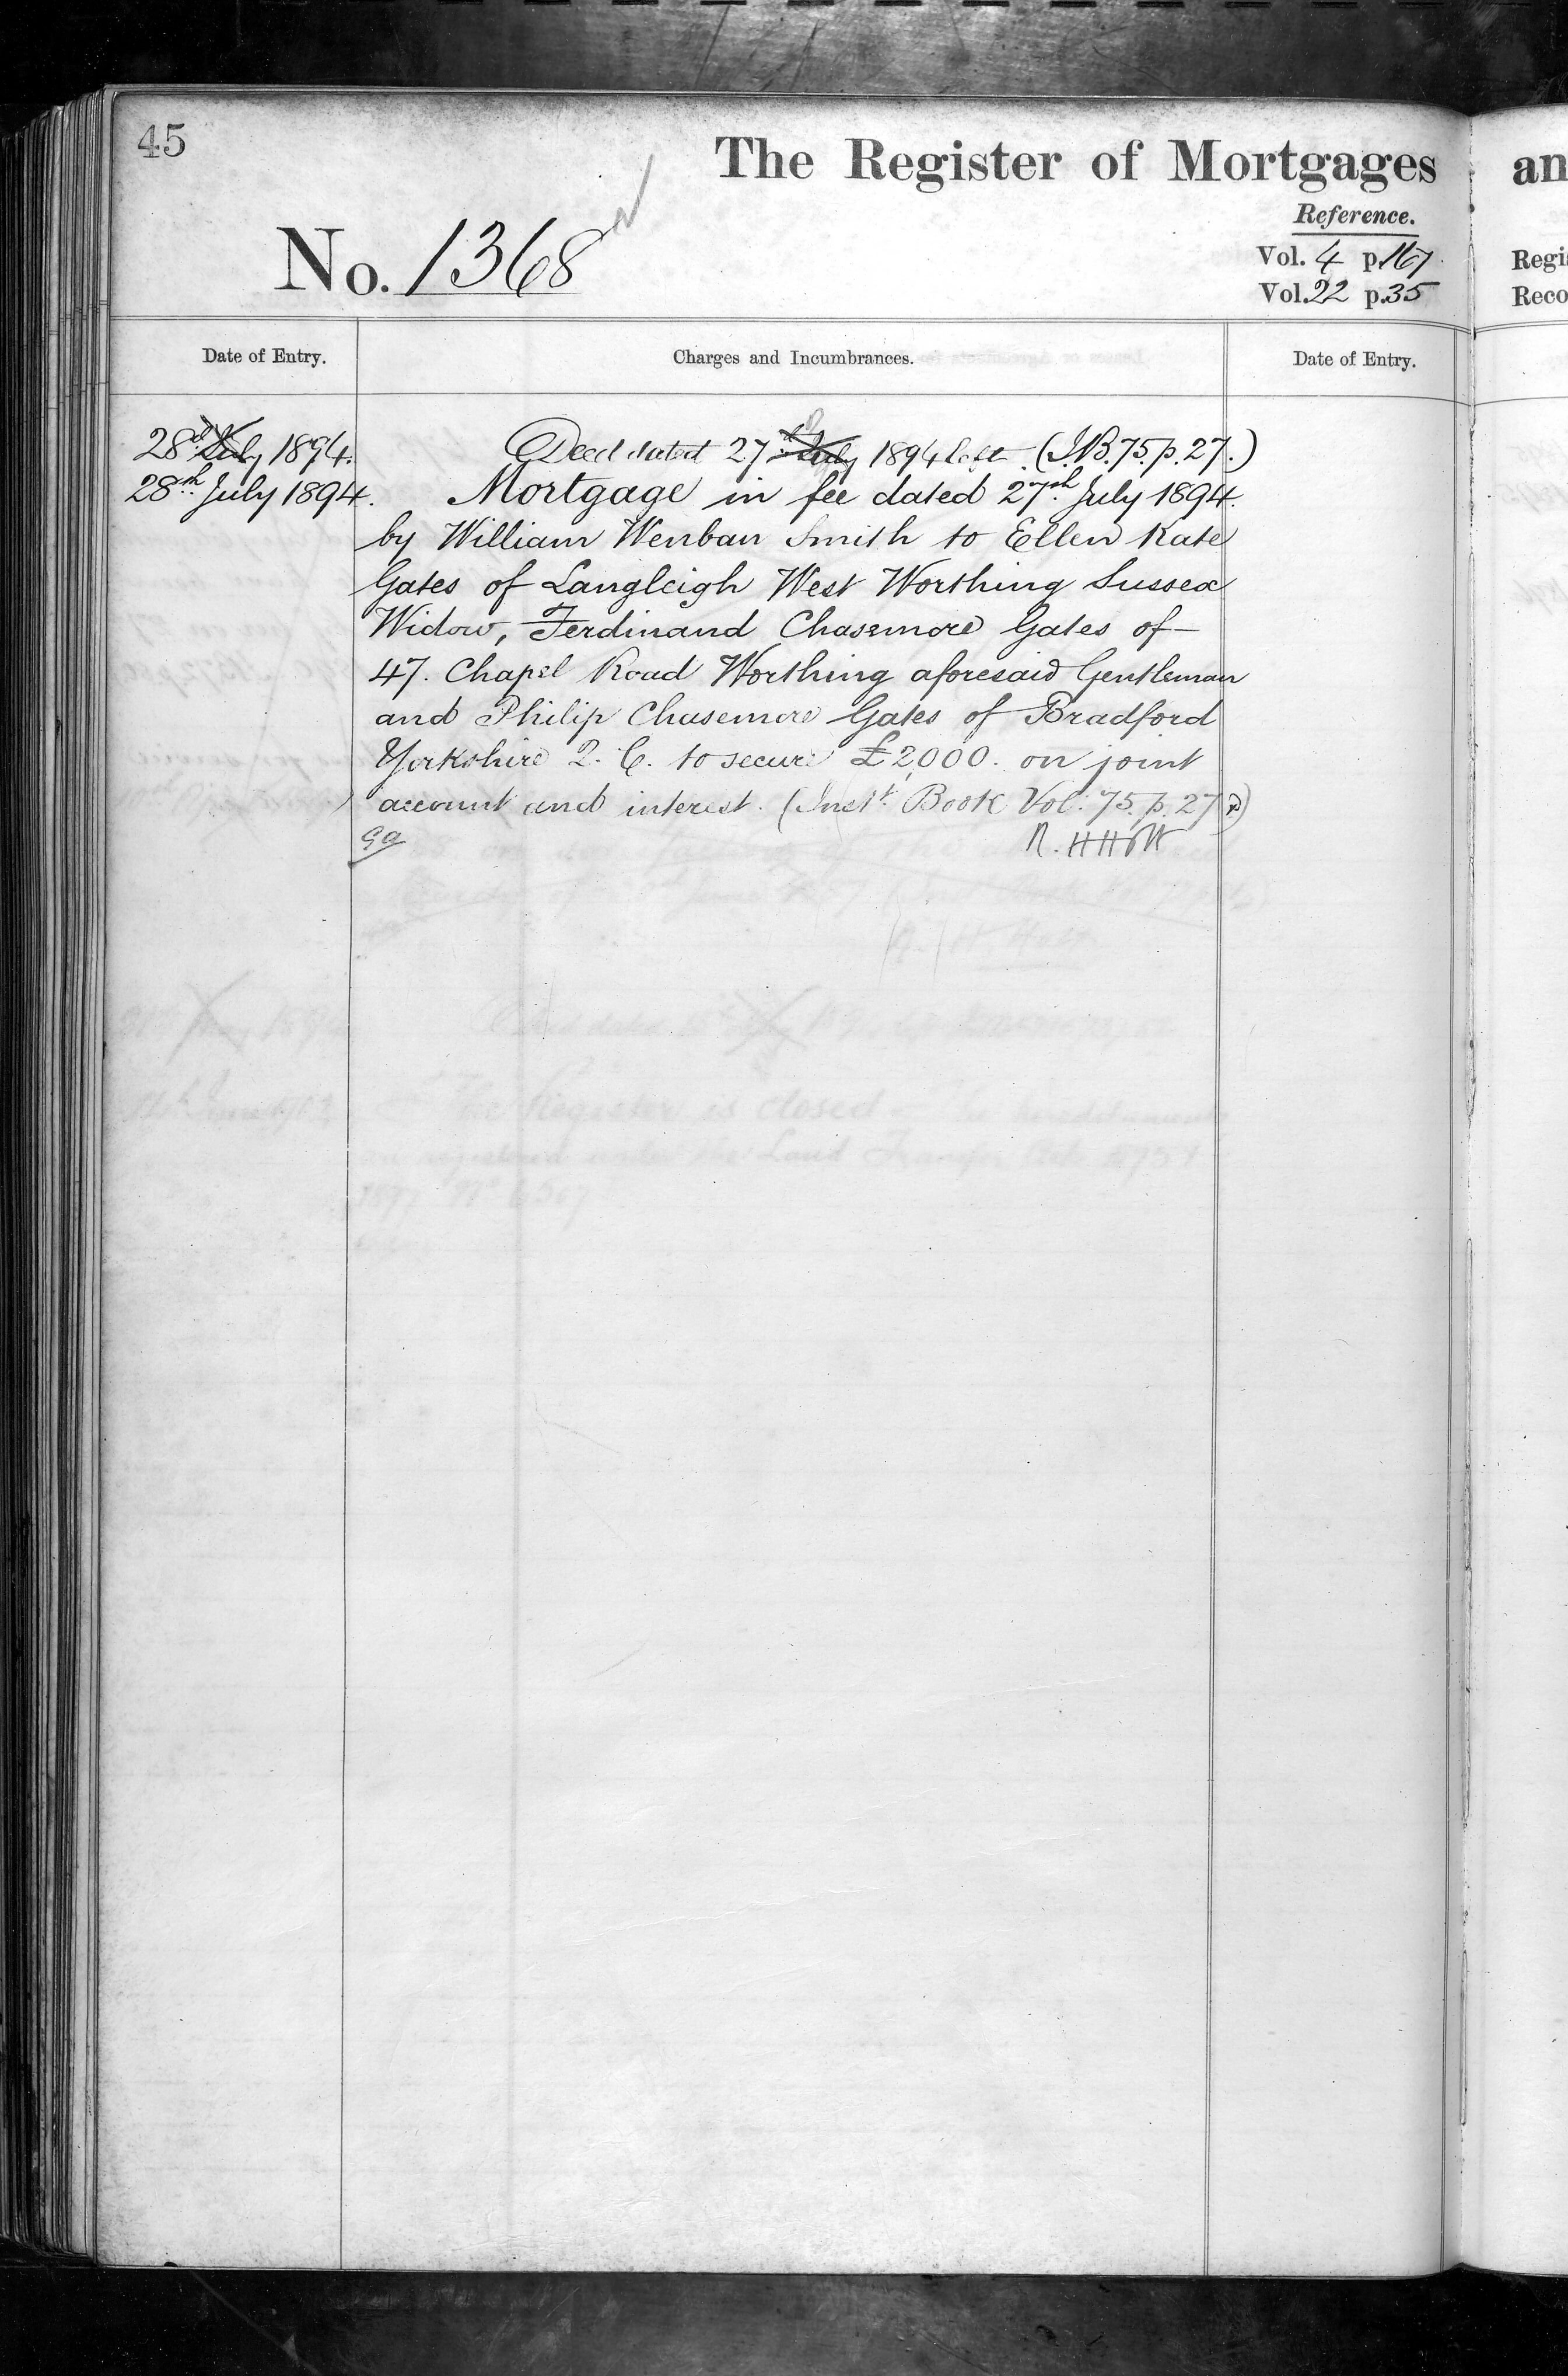 45
The Register of Mortgages
Reference.
No. 1368
Vol. 4 p. 167
Vol. 22 p. 35
Date of Entry.
Charges and Incumbrances.
Date of Entry.
28th July 1894.
Deed dated 27th July 1894 left (I.B. 75. p. 27.)
28th July 1894.
Mortgage in fee dated 27th July 1894.
by William Wenban Smith to Ellen Kate
Gates of Langleigh West Worthing Sussex
Widow, Ferdinand Chasemore Gates of
47. Chapel Road Worthing aforesaid Gentleman
and Philip Chasemore Gates of Bradford
Yorkshire Q. C. to secure £2,000. on joint
account and interest. (Inst. Book Vol. 75. p. 27)
R. H Holt
The Register is closed
an
Regi
Reco